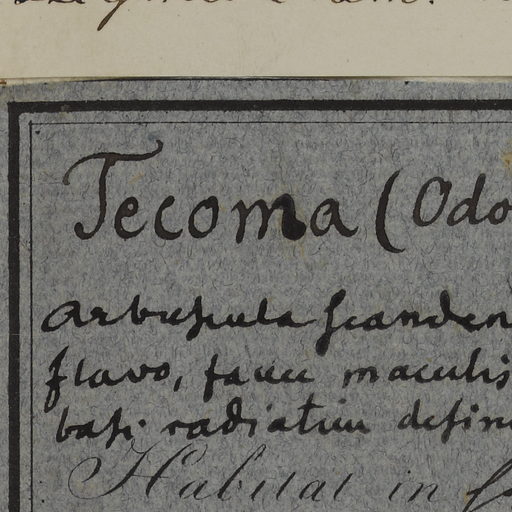 Tecoma (Odo
Arbuscula scanden
flavo, fauce maculis
basi radiatim defin
Habitat in